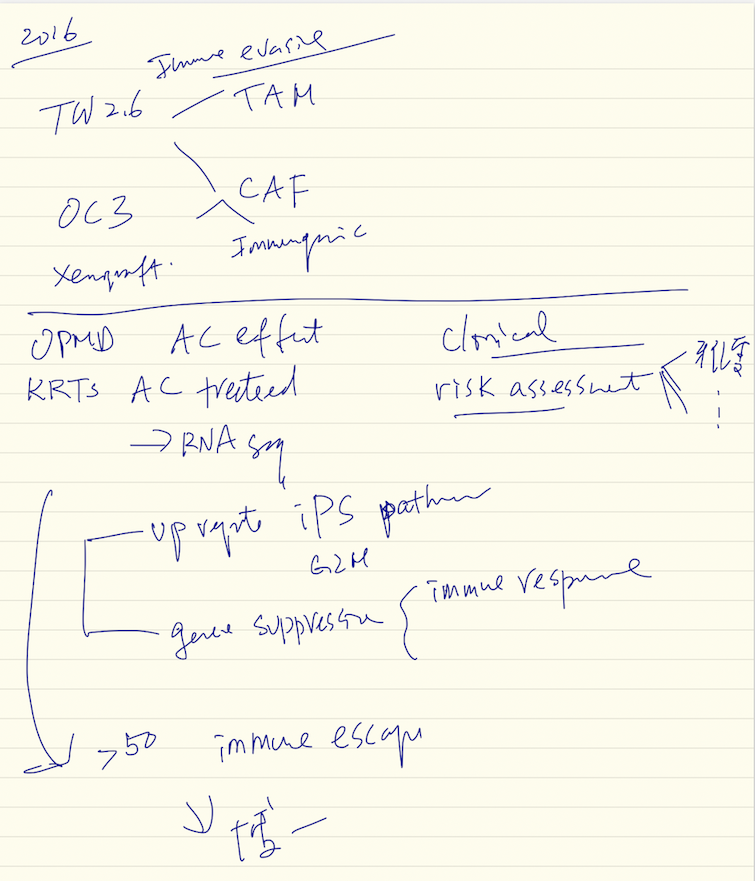 2016
Immune evasive
TW2.6 TAM
CAF
OC3
Immungenic
Xengraft.
OPMD AC effect Clinical
KRTs AC treated risk assessment
→ RNA seq
up regulate iPS pathway
G2M
gene suppression { immune response
>50 immune escape